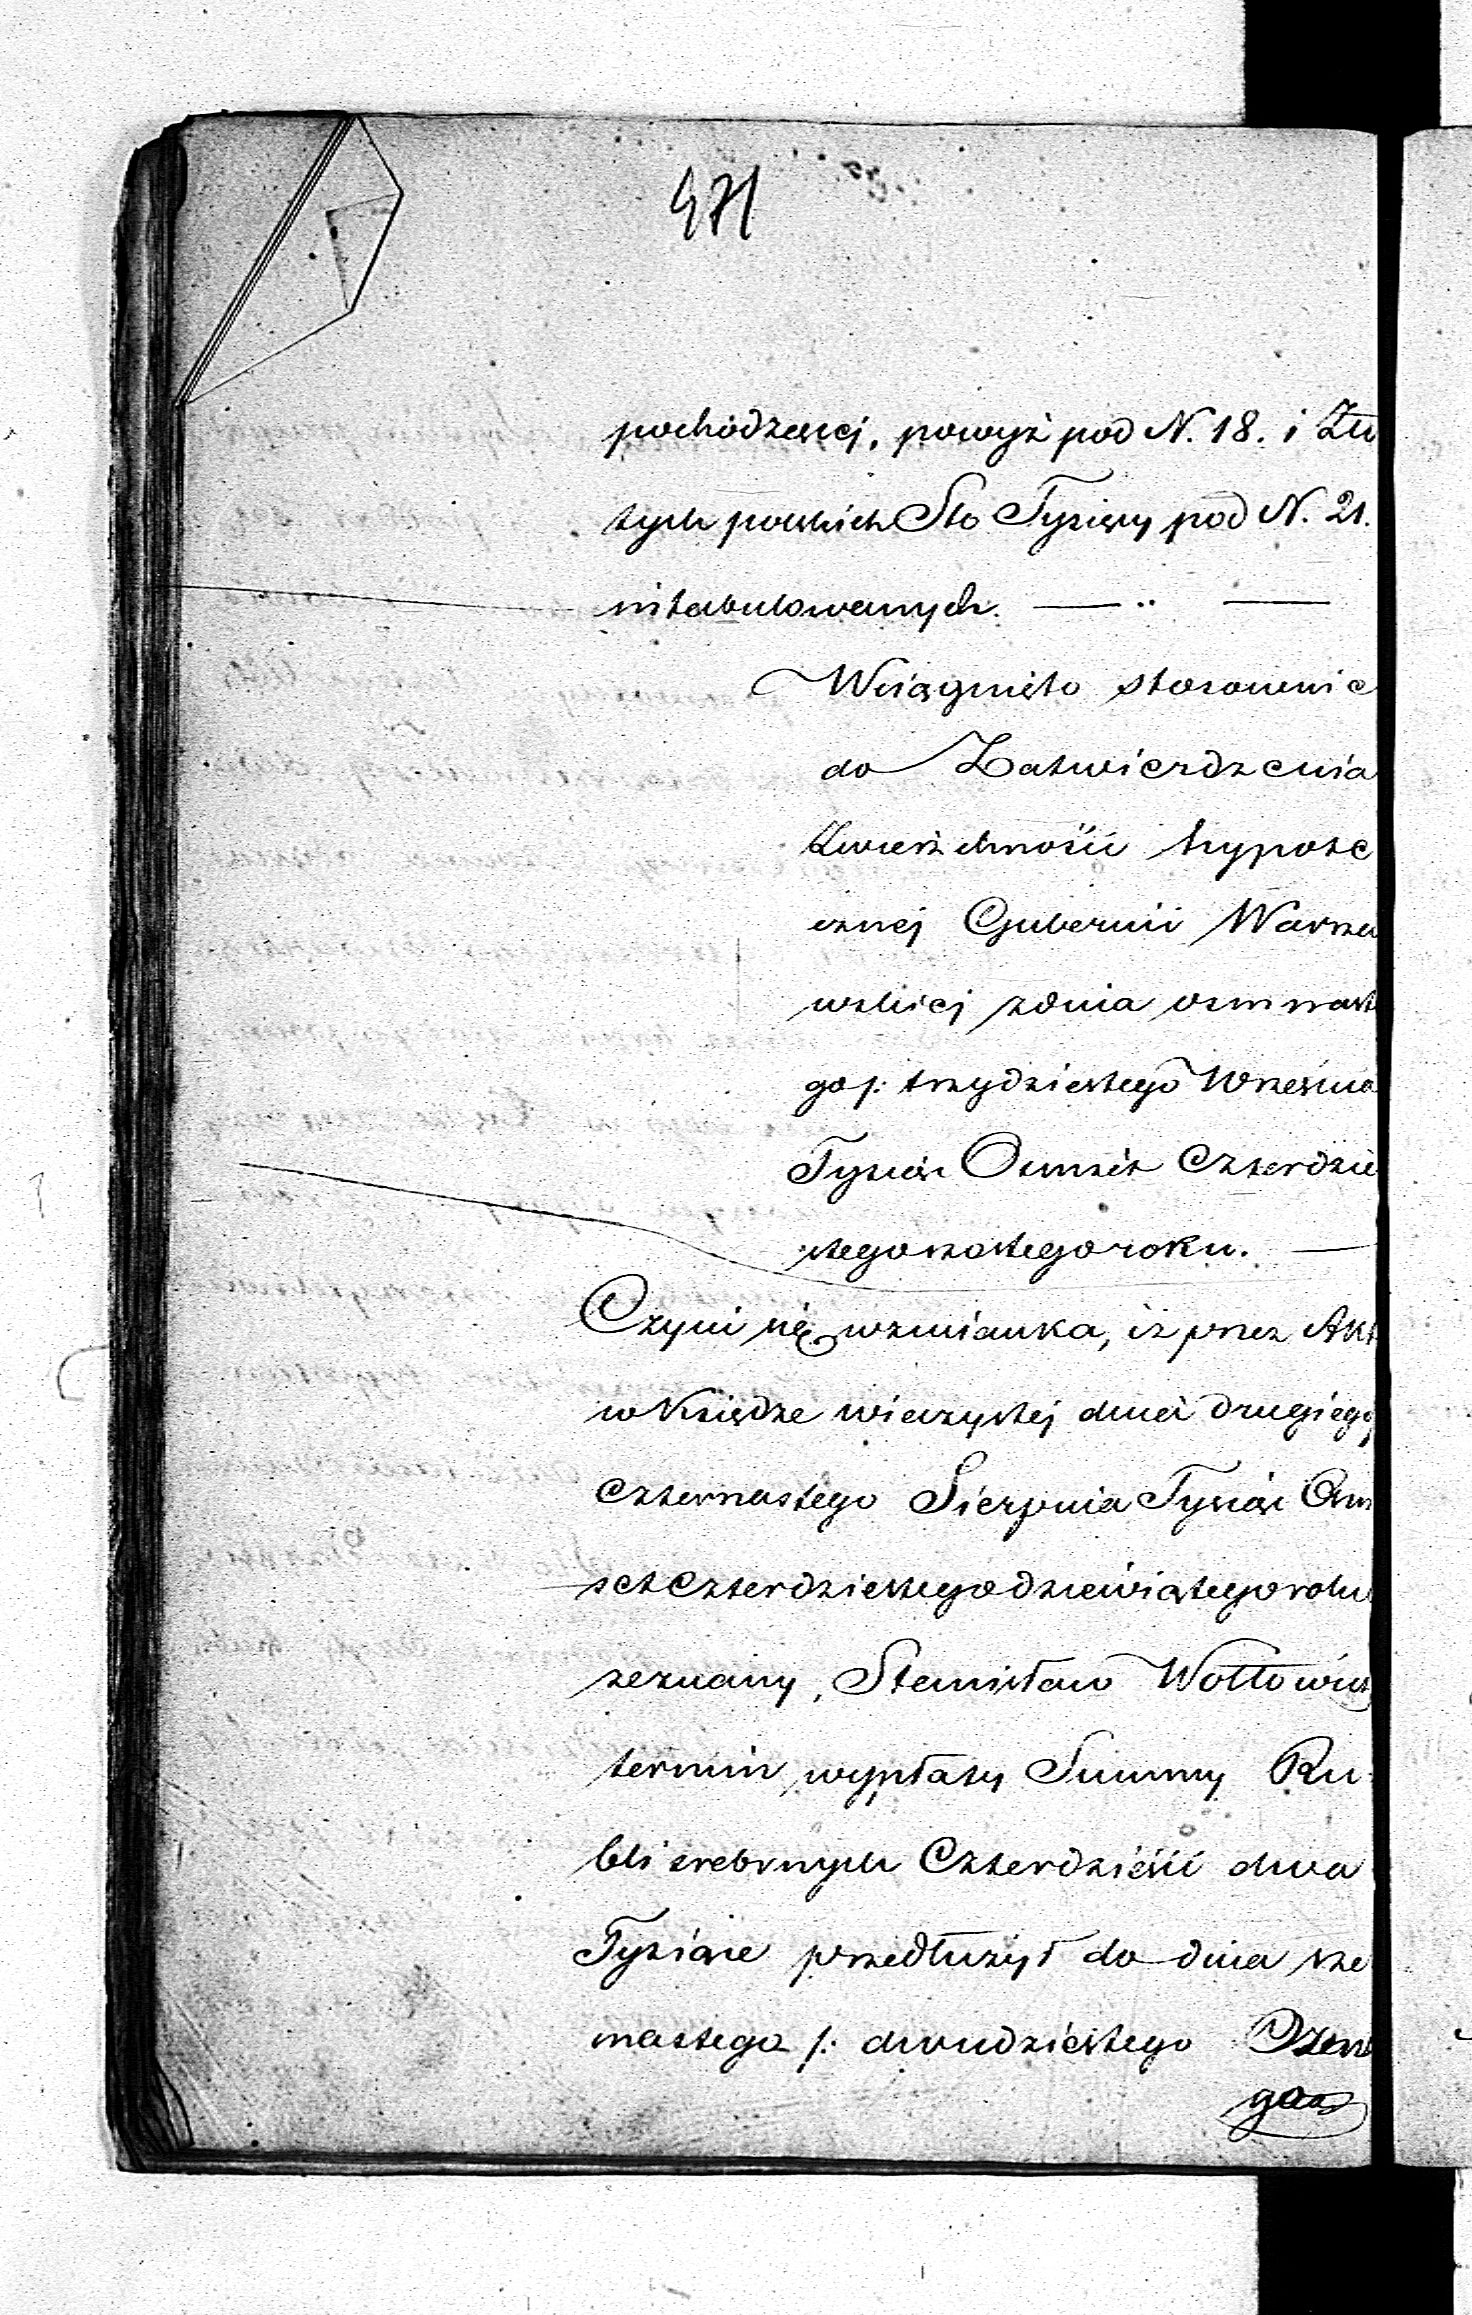 471
pochodzącej, powyż pod N. 18. i Zło
tych polskich Sto Tysięcy pod N. 21.
intabulowanych. — .. —
Wciągnięto stosownie
do Zatwierdzenia
Zwierzchności hypote
cznej Gubernii Warsza
wskiej z dnia osmnaste
go /: trzydziestego Września
Tysiąc Ośmset Czterdzie
stego szóstego roku. —
Czyni się wzmianka, iż przez Akt
w Księdze wieczystej dnia drugiego
czternastego Sierpnia Tysiąc Ośm
set Czterdziestego dziewiątego roku
zeznany, Stanisław Wołłowicz
termin wypłaty Summy Ru-
bli srebrnych Czterdzieści dwa
Tysiące przedłużył do dnia sze
nastego /: dwudziestego Ósme
go